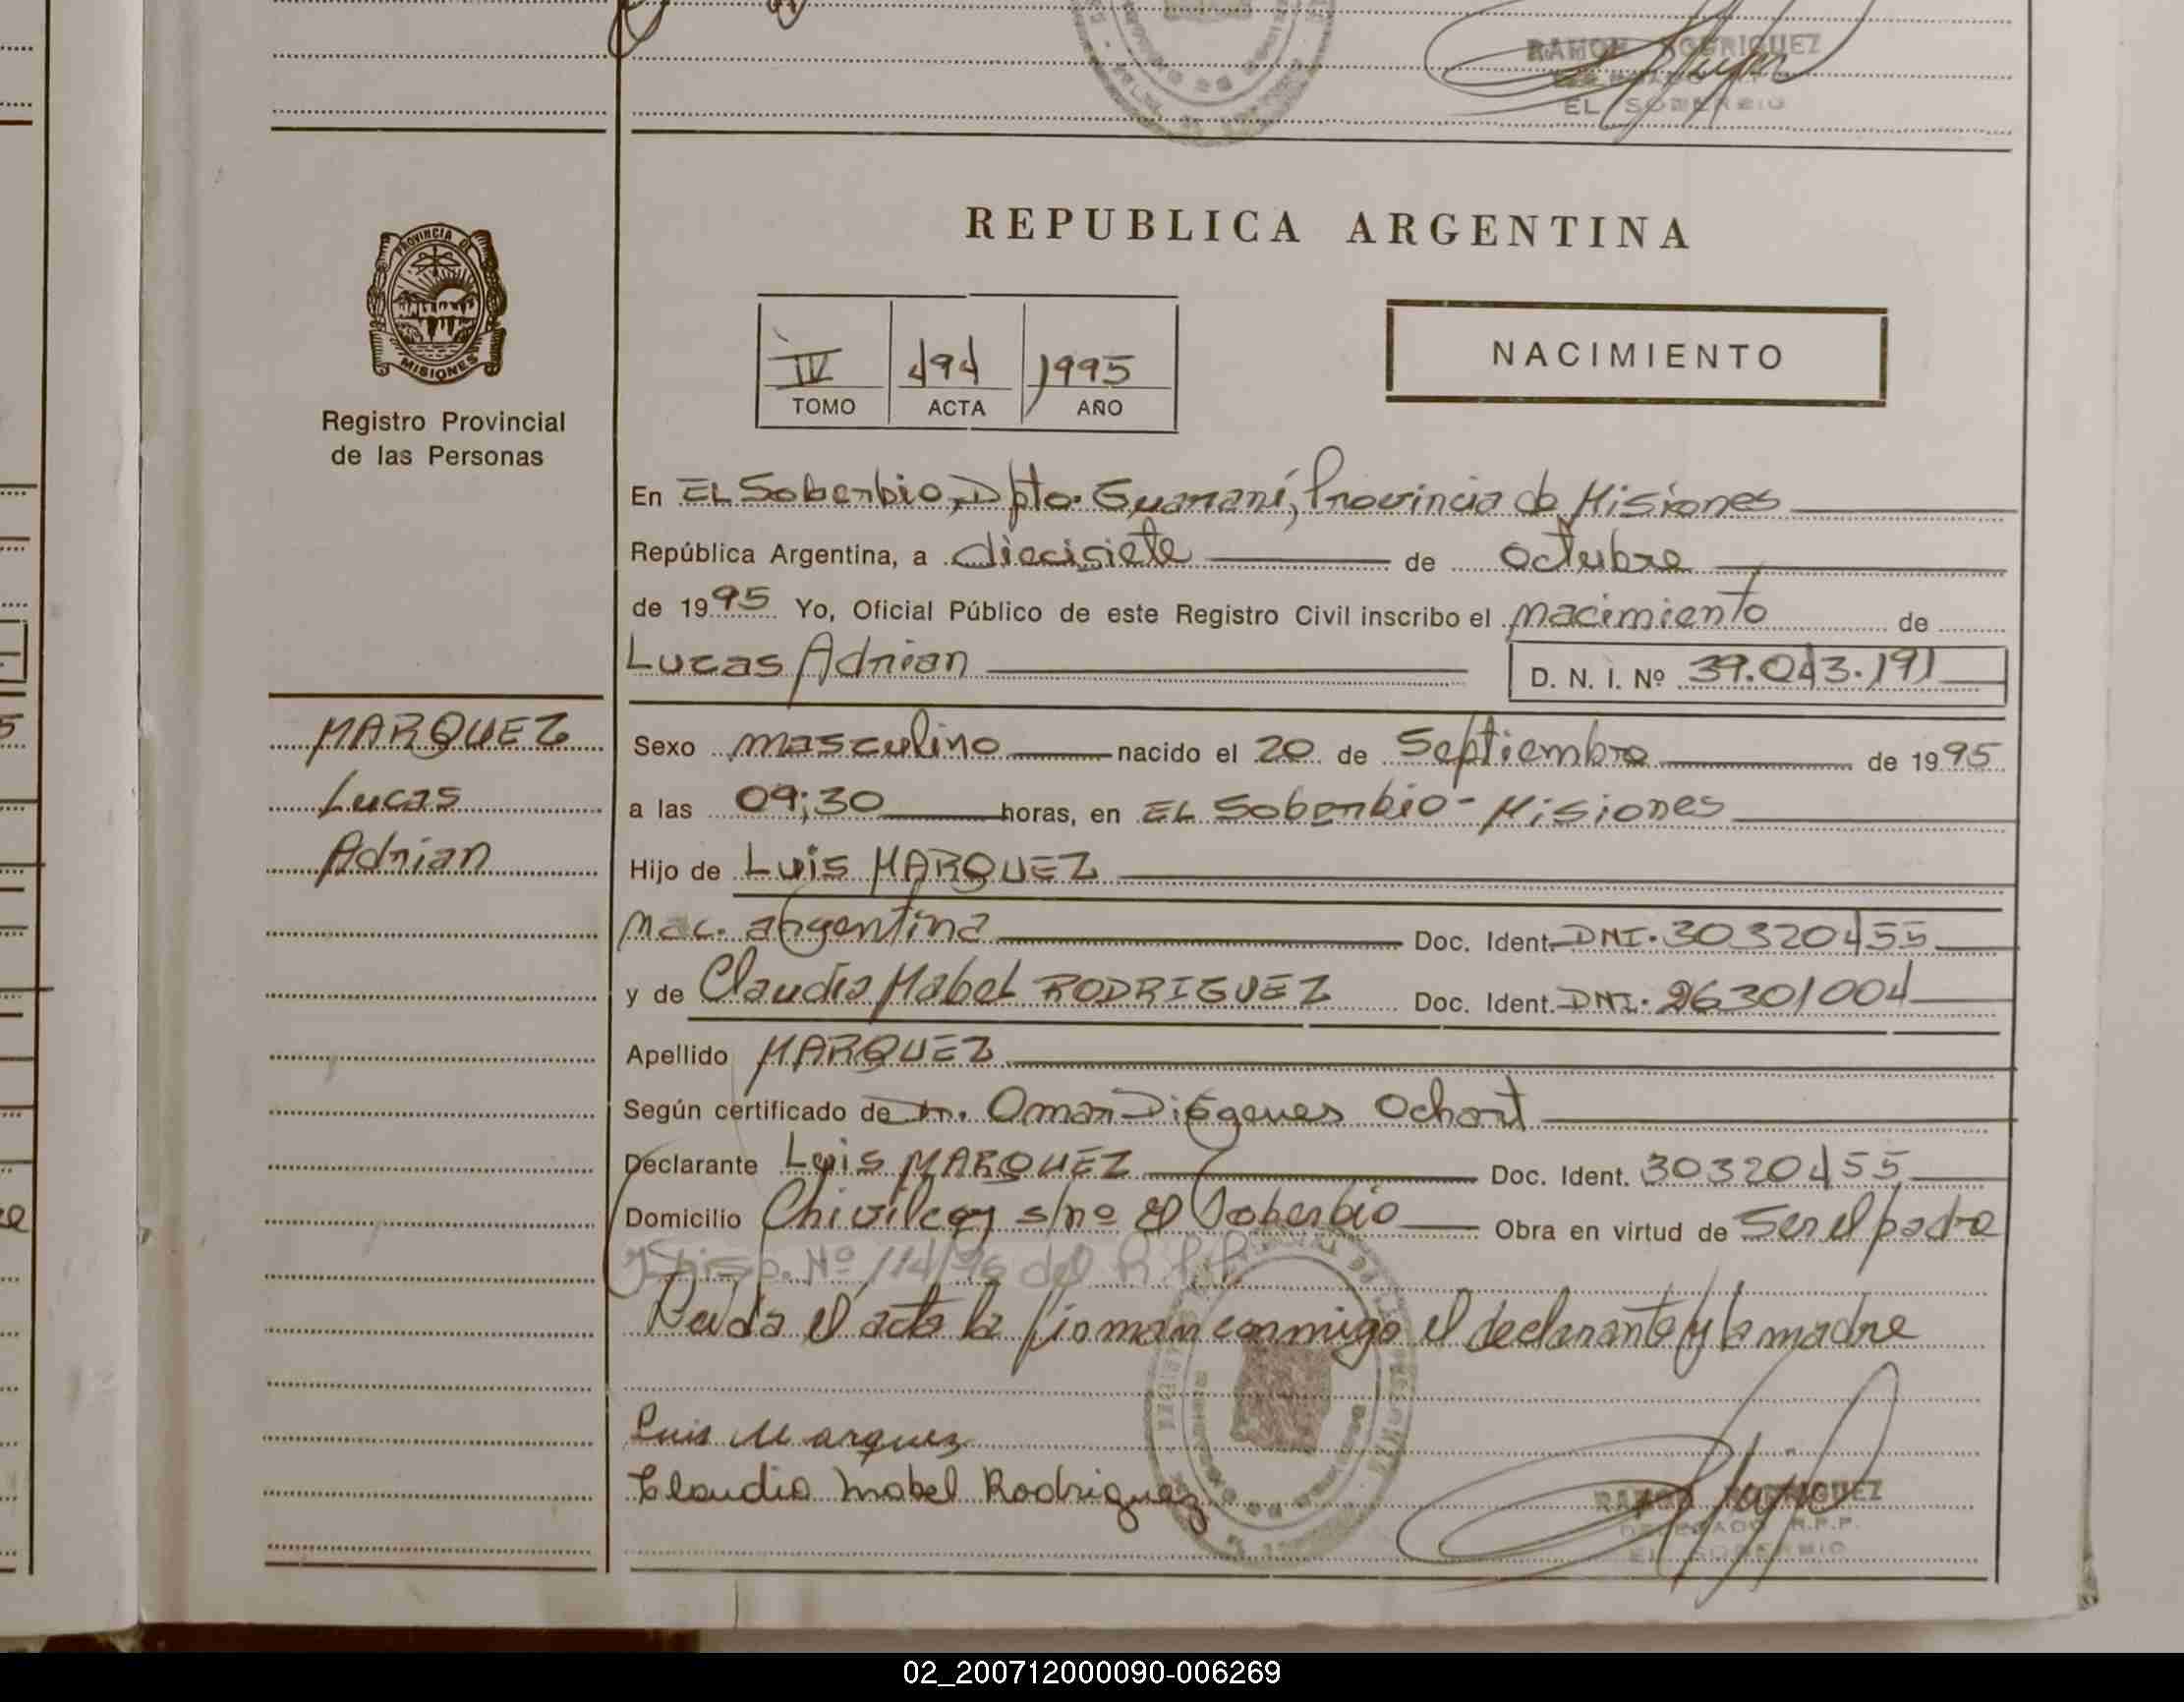 RAMON RODRIGUEZ
EL SOBERBIO
PROVINCIA DE
MISIONES
Registro Provincial
de las Personas
REPUBLICA ARGENTINA
IV 494 1995
TOMO ACTA AÑO
NACIMIENTO
En EL Soberbio, Dpto. Guaraní, Provincia de Misiones
República Argentina, a diecisiete de octubre
de 1995 Yo, Oficial Público de este Registro Civil inscribo el nacimiento de
Lucas Adrian D. N. I. Nº 39.043.191
MARQUEZ
Lucas
Adrian
Sexo masculino nacido el 20 de Septiembre de 1995
a las 09:30 horas, en EL Soberbio - Misiones
Hijo de Luis MARQUEZ
nac. argentina Doc. Ident. DNI. 30320455
y de Claudia Mabel RODRIGUEZ Doc. Ident. DNI. 26301004
Apellido MARQUEZ
Según certificado de Dr. Omar Diógenes Ochort
Declarante Luis MARQUEZ Doc. Ident. 30320455
Domicilio Chivilcoy s/nº El Soberbio Obra en virtud de Ser el padre
Disp. Nº 114/96 del R.P.P.
Leída el acta la firman conmigo el declarante y la madre
Luis Marquez
Claudia Mabel Rodriguez
RAMON RODRIGUEZ
DELEGADO R.P.P.
EL SOBERBIO
02_200712000090-006269